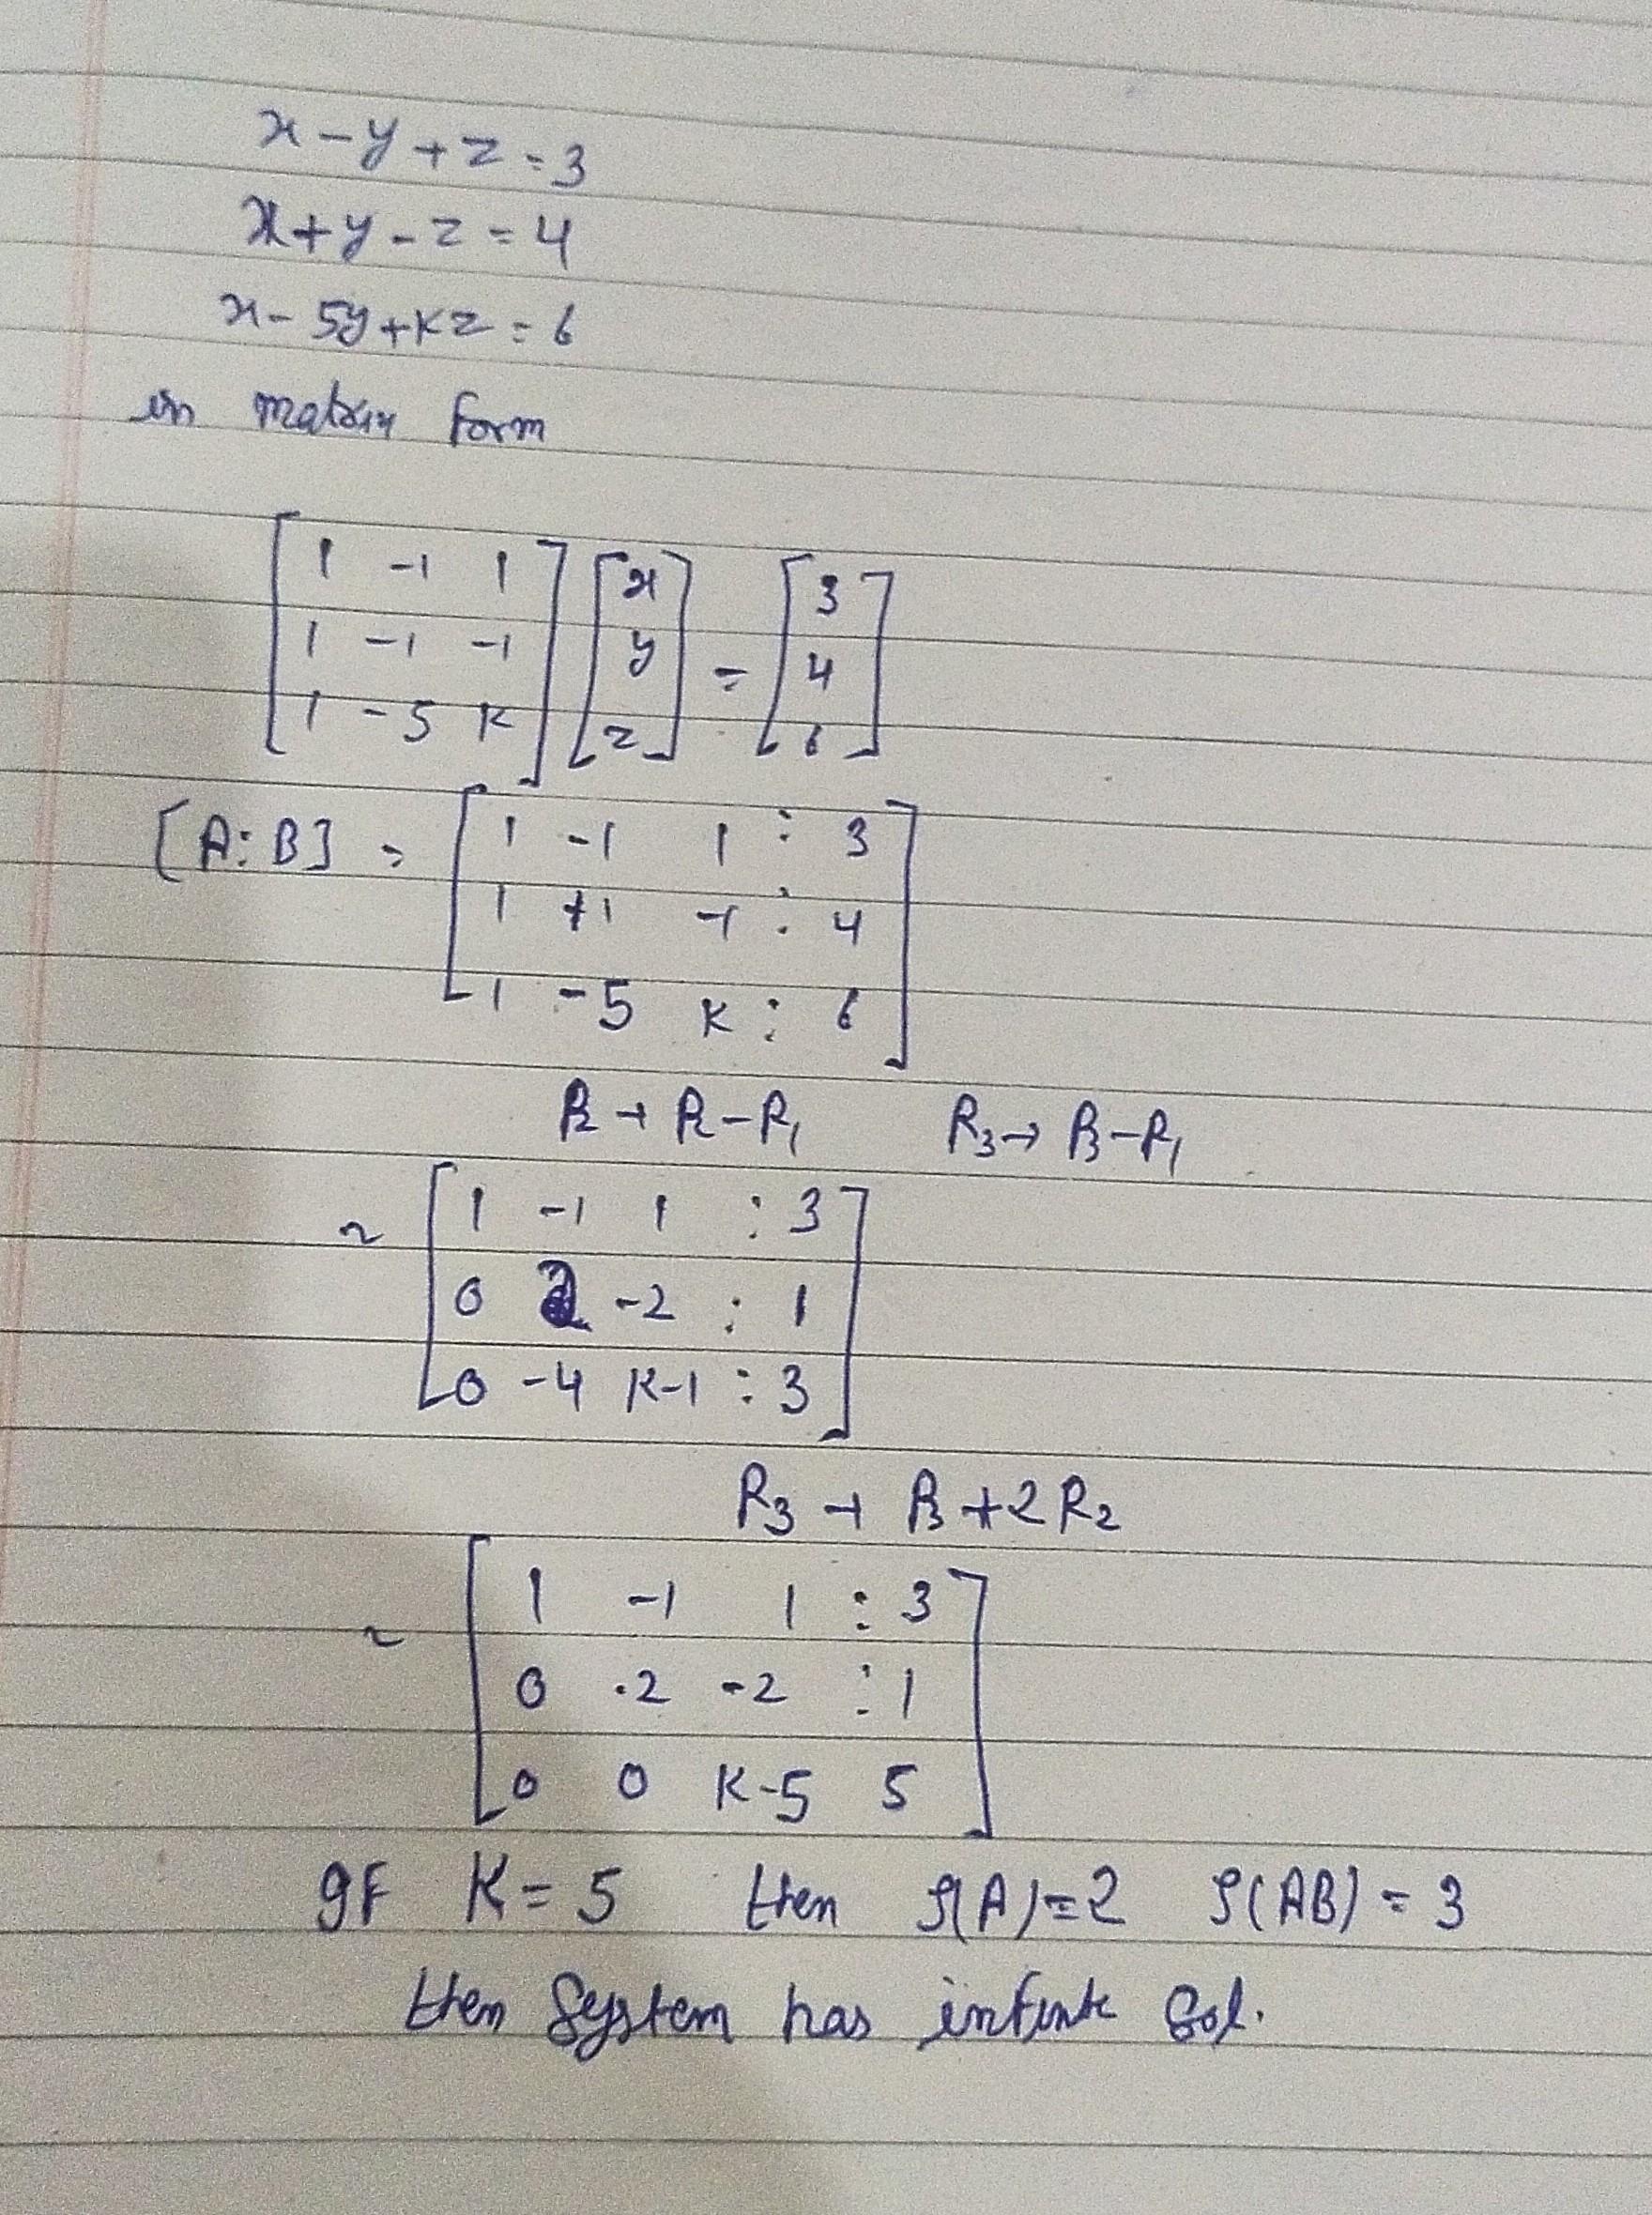 x - y + z = 3
x + y - z = 4
x - 5y + kz = 6
in matrix form
[1 -1 1] [x] = [3]
[1 -1 -1] [y] [4]
[1 -5 k] [z] [6]
[A:B] = [1 -1 1 : 3]
[1 +1 -1 : 4]
[1 -5 k : 6]
R2 → R2 - R1 R3 → R3 - R1
~ [1 -1 1 : 3]
[0 2 -2 : 1]
[0 -4 k-1 : 3]
R3 → R3 + 2R2
~ [1 -1 1 : 3]
[0 2 -2 : 1]
[0 0 k-5 5]
If K = 5 then ρ(A) = 2 ρ(AB) = 3
then System has infinite Sol.